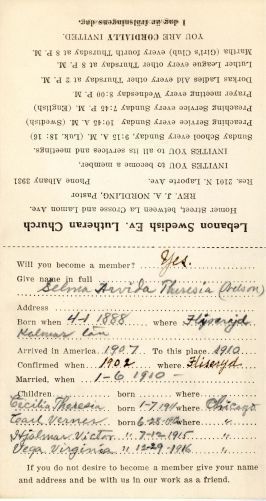 Lebanon Swedish Ev. Lutheran Church
Homer Street, between La Crosse and Lamon Ave.
REV. J. A. NORDLING, Pastor,
Res. 2101 N. Laporte Ave. Phone Albany 3931
INVITES YOU to become a member.
INVITES YOU to all its services and meetings.
Sunday School every Sunday, 9:15 A. M. (Luk. 18: 16)
Preaching Service every Sunday 10:45 A. M. (Swedish)
Preaching Service every Sunday 7:45 P. M. (English)
Prayer meeting every Wednesday 8:00 P. M.
Dorkas Ladies Aid every other Thursday at 2 P. M.
Luther League every other Thursday at 8 P. M.
Martha (Girl's Club) every fourth Thursday at 8 P. M.
YOU ARE CORDIALLY INVITED.
I dag är frälsningens dag.
Will you become a member? Yes
Give name in full
Selma Arvida Theresia (Nelson)
Address
Born when 4-1 1888 where Fliseryd
Kalmar län
Arrived in America 1907 To this place 1910
Confirmed when 1902 where Fliseryd
Married, when 1-6 1910 -
Children born where
Cecilia Theresia born 1-7-19 where Chicago
Carl Verner born 6-28- where "
Hjalmar Victor " 7-12-1915 "
Vega Virginia " 12-29-1916 "
If you do not desire to become a member give your name
and address and be with us in our work as a friend.